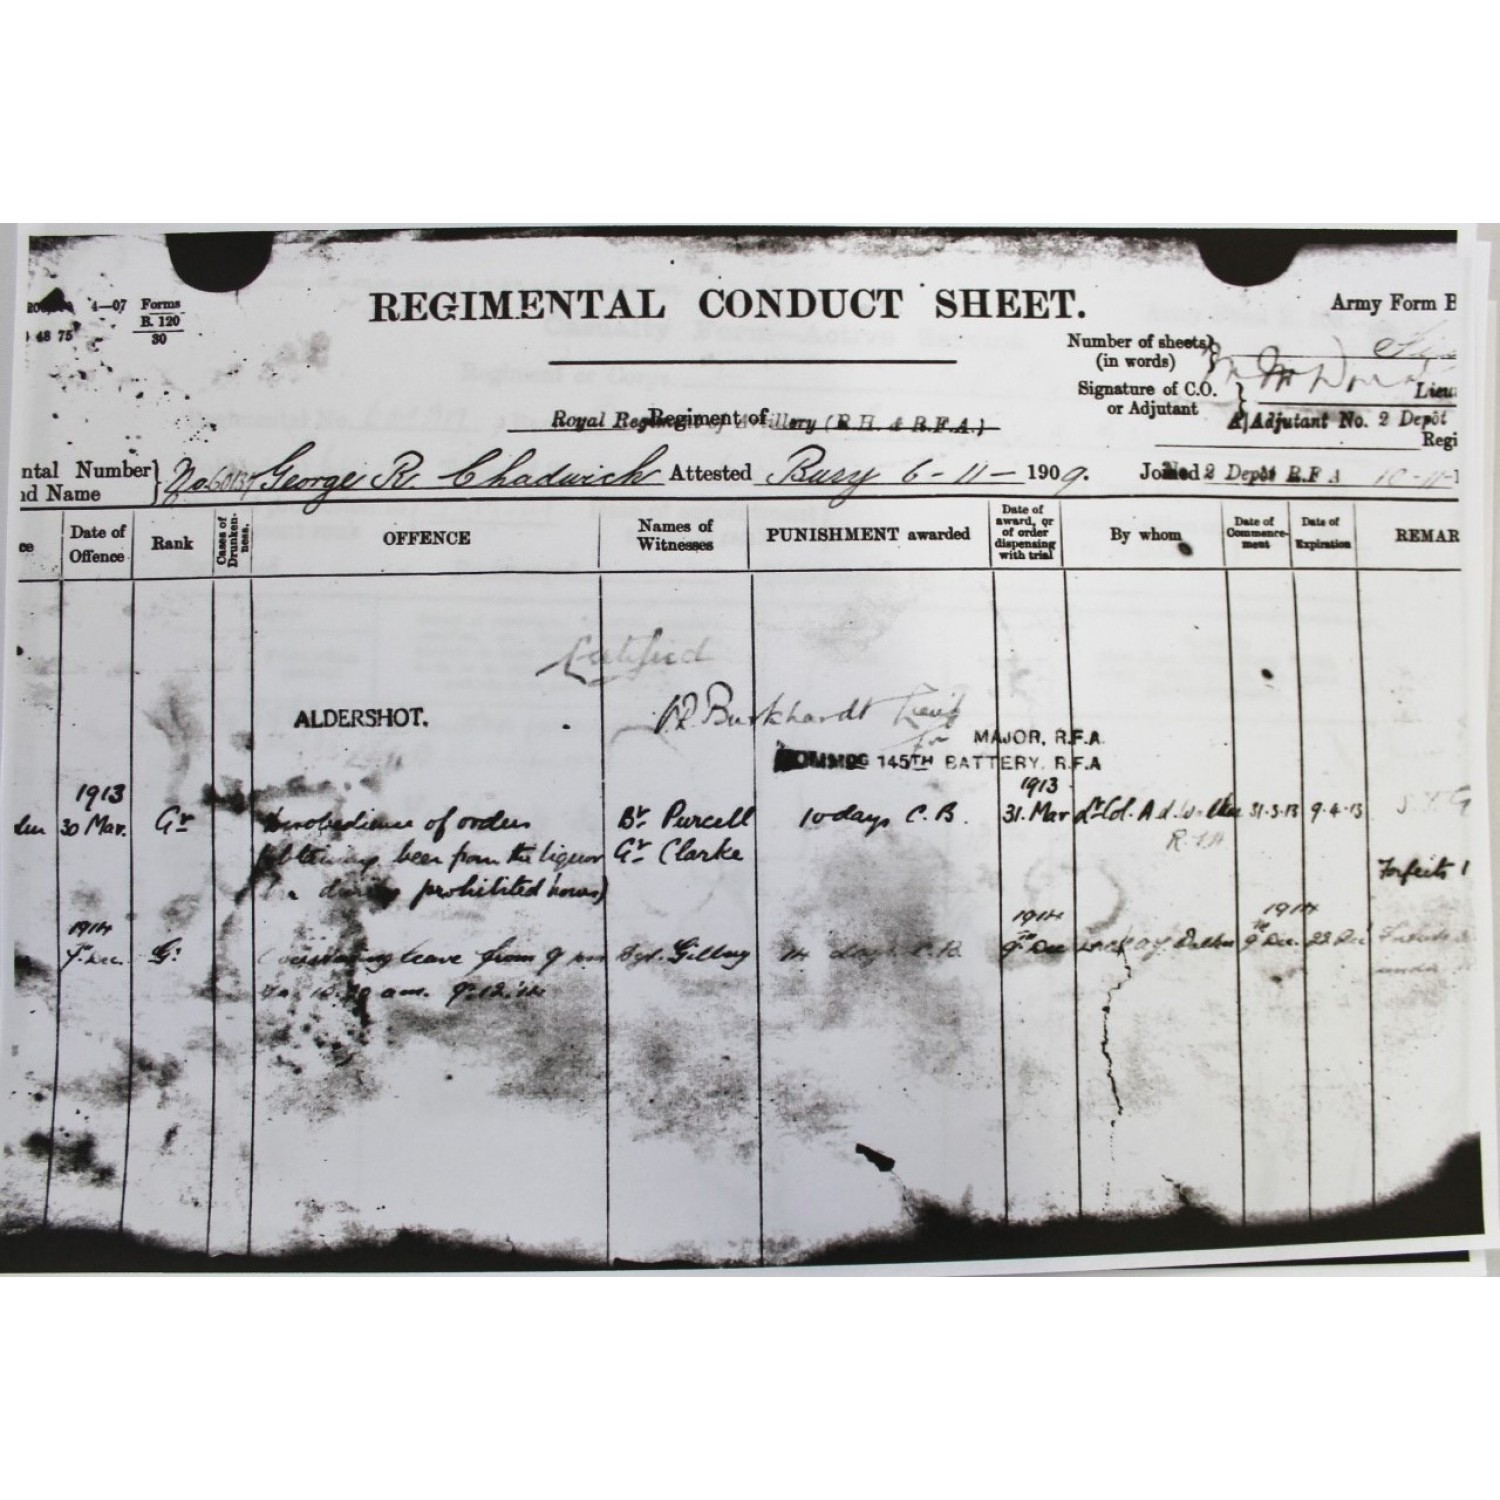 4—07 Forms
B. 120
30
48 75
REGIMENTAL CONDUCT SHEET.
Army Form B
Number of sheets
(in words)
Signature of C.O.
or Adjutant
Lieu
& Adjutant No. 2 Depôt
Regi
Royal Regiment of Artillery (R.H. & R.F.A.)
Regiment of
ntal Number
nd Name
No. 60137 George R. Chadwick Attested Bury 6-11-1909. Joined No 2 Depôt R.F.A 10-11-1
ce Date of Offence Rank Cases of Drunkenness. OFFENCE Names of Witnesses PUNISHMENT awarded Date of award, or of order dispensing with trial By whom Date of Commencement Date of Expiration REMAR
Certified
ALDERSHOT.
Burkhardt Lieut
for MAJOR, R.F.A.
COMMDG 145TH BATTERY, R.F.A
1913 1913
30 Mar. Gr Disobedience of orders Br. Purcell 10 days C.B. 31 Mar Lt Col. 31-3-13 9-4-13
(obtaining beer from the liquor Gr. Clarke
during prohibited hours)
Forfeits 1
1914 1914 1914
Dec. Gr Overstaying leave from 9 pm Sgt. Gilbey 14 days C.B. 9th Dec 9th Dec. 22 Dec
to 10.20 am. 9.12.14 under